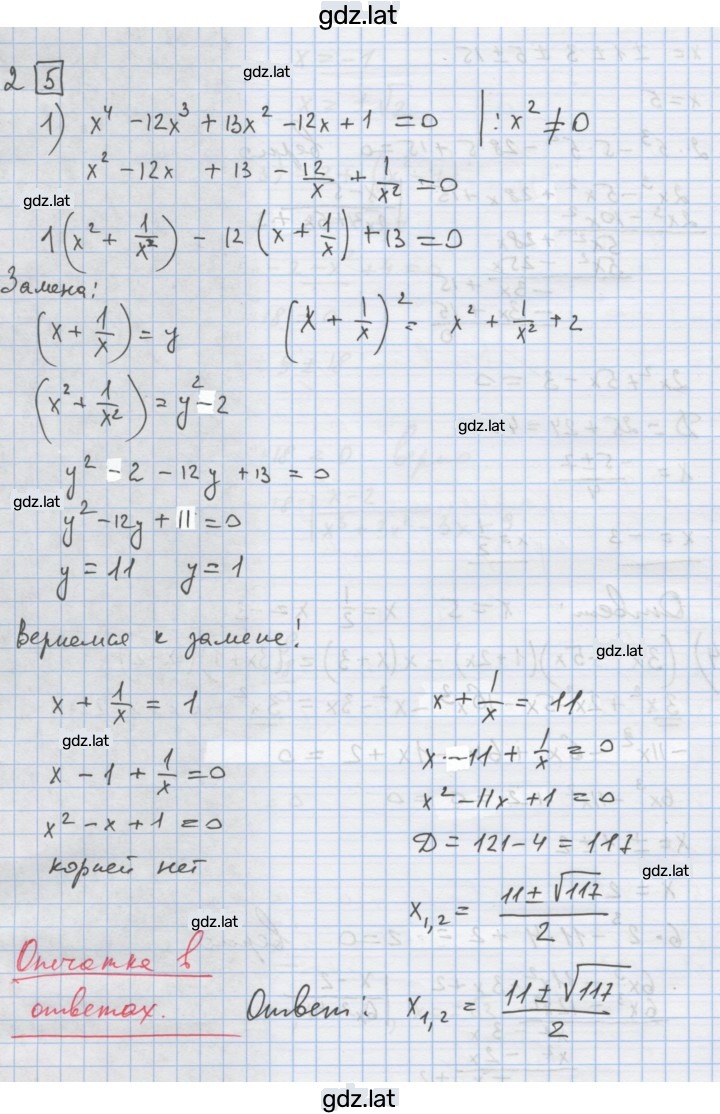 gdz.lat
2 5
gdz.lat
1) x⁴ - 12x³ + 13x² - 12x + 1 = 0 | : x² ≠ 0
x² - 12x + 13 - 12/x + 1/x² = 0
gdz.lat
1(x² + 1/x²) - 12(x + 1/x) + 13 = 0
Замена:
(x + 1/x) = y (x + 1/x)² = x² + 1/x² + 2
(x² + 1/x²) = y² - 2
gdz.lat
y² - 2 - 12y + 13 = 0
gdz.lat
y² - 12y + 11 = 0
y = 11 y = 1
Вернемся к замене!
gdz.lat
x + 1/x = 1 x + 1/x = 11
gdz.lat
x - 1 + 1/x = 0 x - 11 + 1/x = 0
x² - x + 1 = 0 x² - 11x + 1 = 0
корней нет D = 121 - 4 = 117
gdz.lat
x₁,₂ = (11 ± √117)/2
gdz.lat
Опечатка в
ответах.
Ответ: x₁,₂ = (11 ± √117)/2
gdz.lat